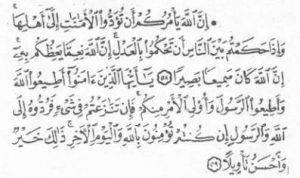 ۞ إِنَّ ٱللَّهَ يَأۡمُرُكُمۡ أَن تُؤَدُّواْ ٱلۡأَمَٰنَٰتِ إِلَىٰٓ أَهۡلِهَا
وَإِذَا حَكَمۡتُم بَيۡنَ ٱلنَّاسِ أَن تَحۡكُمُواْ بِٱلۡعَدۡلِۚ إِنَّ ٱللَّهَ نِعِمَّا يَعِظُكُم بِهِۦٓۗ
إِنَّ ٱللَّهَ كَانَ سَمِيعَۢا بَصِيرٗا ٥٨ يَٰٓأَيُّهَا ٱلَّذِينَ ءَامَنُوٓاْ أَطِيعُواْ ٱللَّهَ
وَأَطِيعُواْ ٱلرَّسُولَ وَأُوْلِي ٱلۡأَمۡرِ مِنكُمۡۖ فَإِن تَنَٰزَعۡتُمۡ فِي شَيۡءٖ فَرُدُّوهُ إِلَى
ٱللَّهِ وَٱلرَّسُولِ إِن كُنتُمۡ تُؤۡمِنُونَ بِٱللَّهِ وَٱلۡيَوۡمِ ٱلۡأٓخِرِۚ ذَٰلِكَ خَيۡرٞ
وَأَحۡسَنُ تَأۡوِيلًا ٥٩